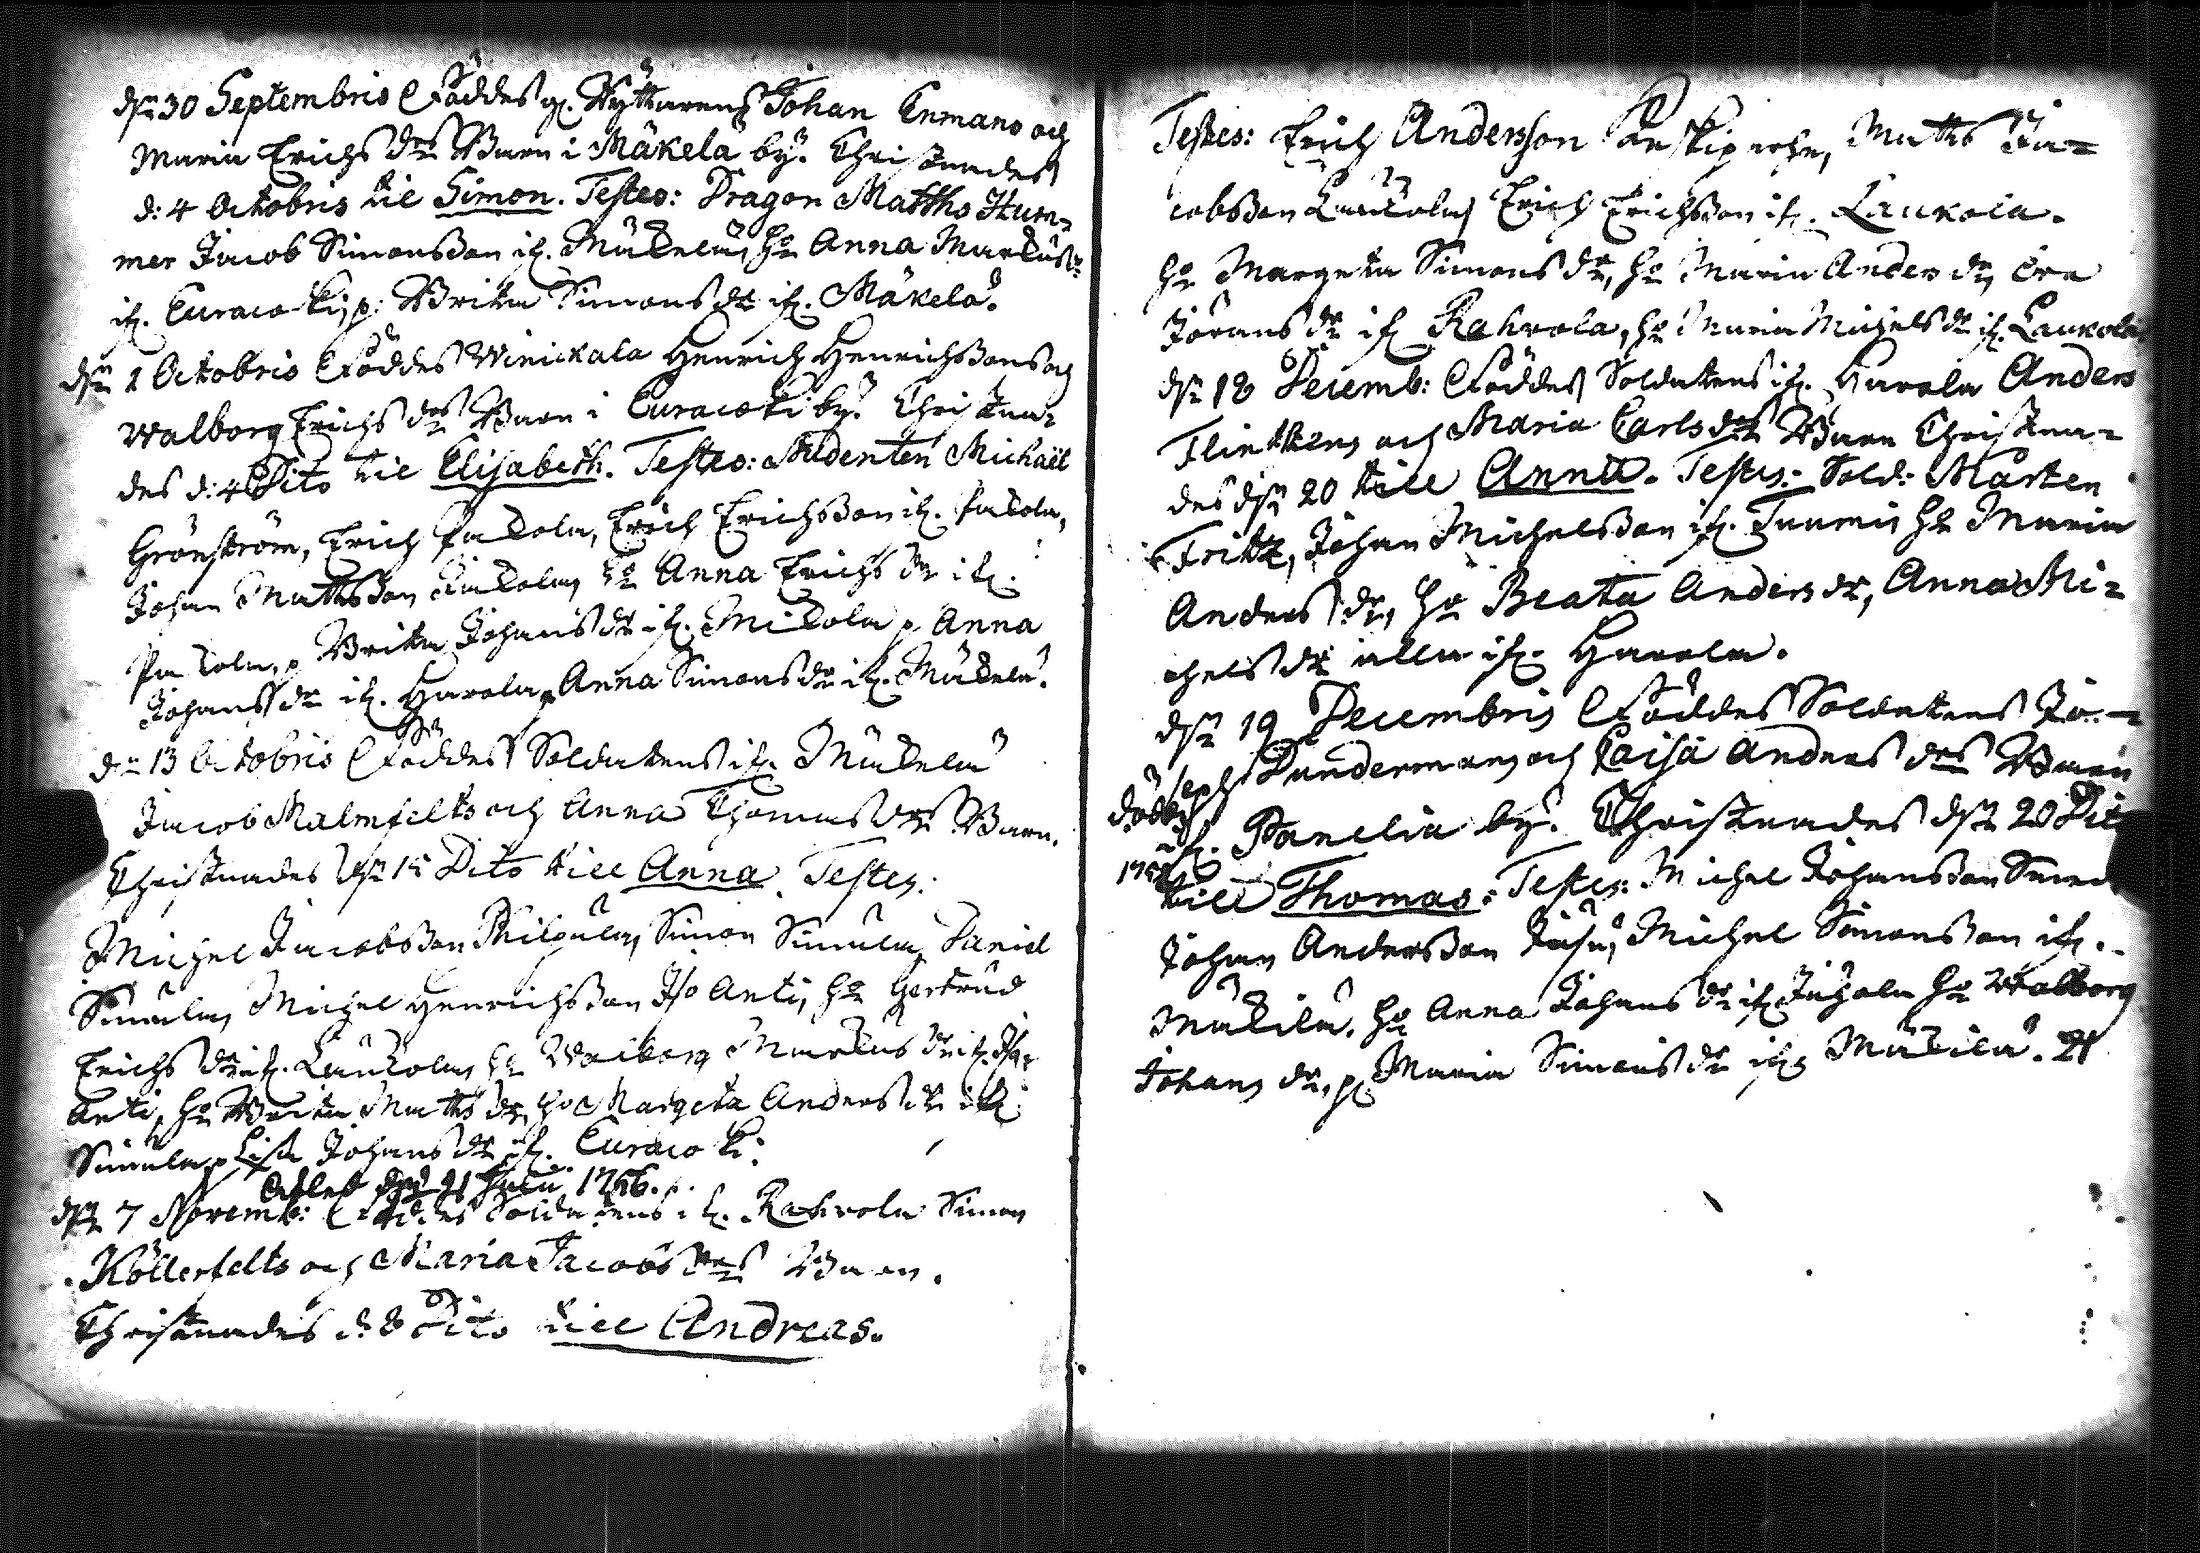 d. 30 Septembris Föddes g. Ryttarens Johan Enmans och
Maria Erichs drs Barn i Mäkelä by. Christnades
d: 4 Octobris till Simon. Testes: Dragon Matths Hum-
mer Jacob Simonsson if. Mäkelä, H: Anna Markus dr
if. Curacoski, p: Britta Simons dr if. Mäkelä.
den 1 Octobris Föddes Winickala Henrich Henrichssons och
Walborg Erichs drs Barn i Curacoski by. Christna-
des d: 4 Dito till Elisabeth. Testes: Studenten Michaël
Grönström, Erich Pakola, Erich Erichsson if. Pakola,
Johan Mattsson Pakola, H: Anna Erichs dr if.
Pakola, p. Britta Johans dr if. Mikola p. Anna
Johans dr if. Harola, p. Anna Simons dr if. Mäkelä.
den 13 Octobris Föddes Soldatens if. Mäkelä
Jacob Malmfelts och Anna Thomas drs Barn.
Christnades den 15 Dito till Anna. Testes:
Michel Jacobsson Philpula, Simon Simula, Daniel
Simula, Michel Henrichsson Iso Anti, H: Gertrud
Erichs dr if. Laukola, H: Walborg Markus dr if. Iso
Anti, H: Britta Matts dr, H: Margeta Anders dr if.
Simula, p. Lisa Johans dr if. Curacoski.
den 21 1756.
den 7 Novemb: Föddes Soldatens if. Rahvola Simon
Köllerfelts och Maria Jacobs drs Barn.
Christnades d. 8 Dito till Andreas.
Testes: Erich Andersson Matts Ja-
cobsson Laukola, Erich Erichsson if. Laukola.
H: Margeta Simons dr, H: Maria Anders dr, Eva
Jörans dr if. Rahvola, H: Maria Michels dr if. Laukola
den 18 Decemb: Föddes Soldatens if. Harola Anders
Flinttens och Maria Carls drs Barn Christna-
des den 20 till Anna. Testes: Sold: Mårten
Fritz, Johan Michelsson if. Tuomi, H: Maria
Anders dr, H: Beata Anders dr, Anna Mi-
chels dr alla if. Harola.
den 19 Decembris Föddes Soldatens Jo-
seph Dundermans och Caisa Anders drs Barn
död
if. Panelia by. Christnades den 20 Dito
till Thomas. Testes: Michel Johansson
Johan Andersson Michel Simonsson if.
Mäkilä. H: Anna Johans dr if. H: Walborg
Johans dr, p. Maria Simons dr if. Mäkilä. 21